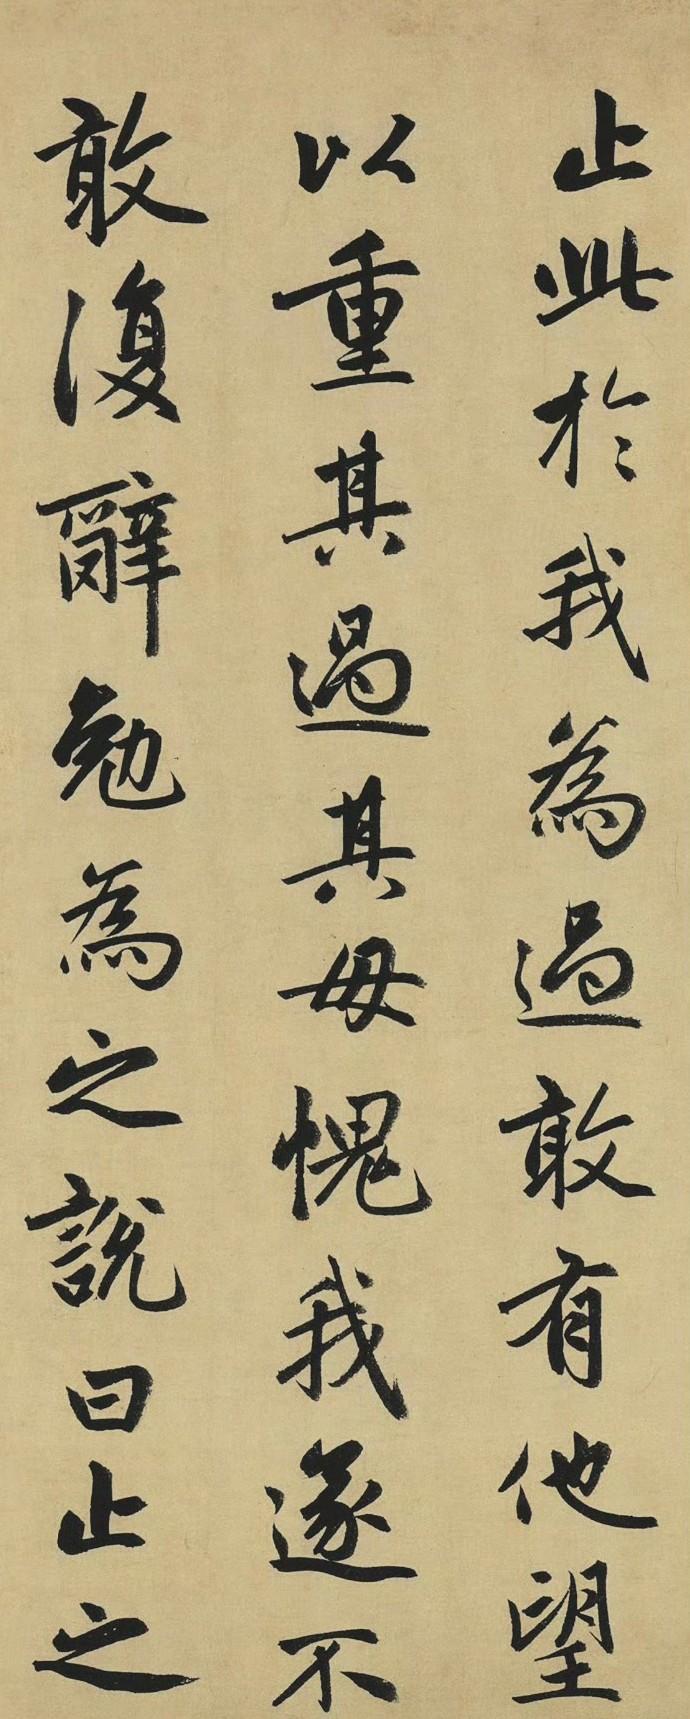 止此於我為過敢有他望
以重其過其毋愧我遂不
敢復辭勉為之說曰止之